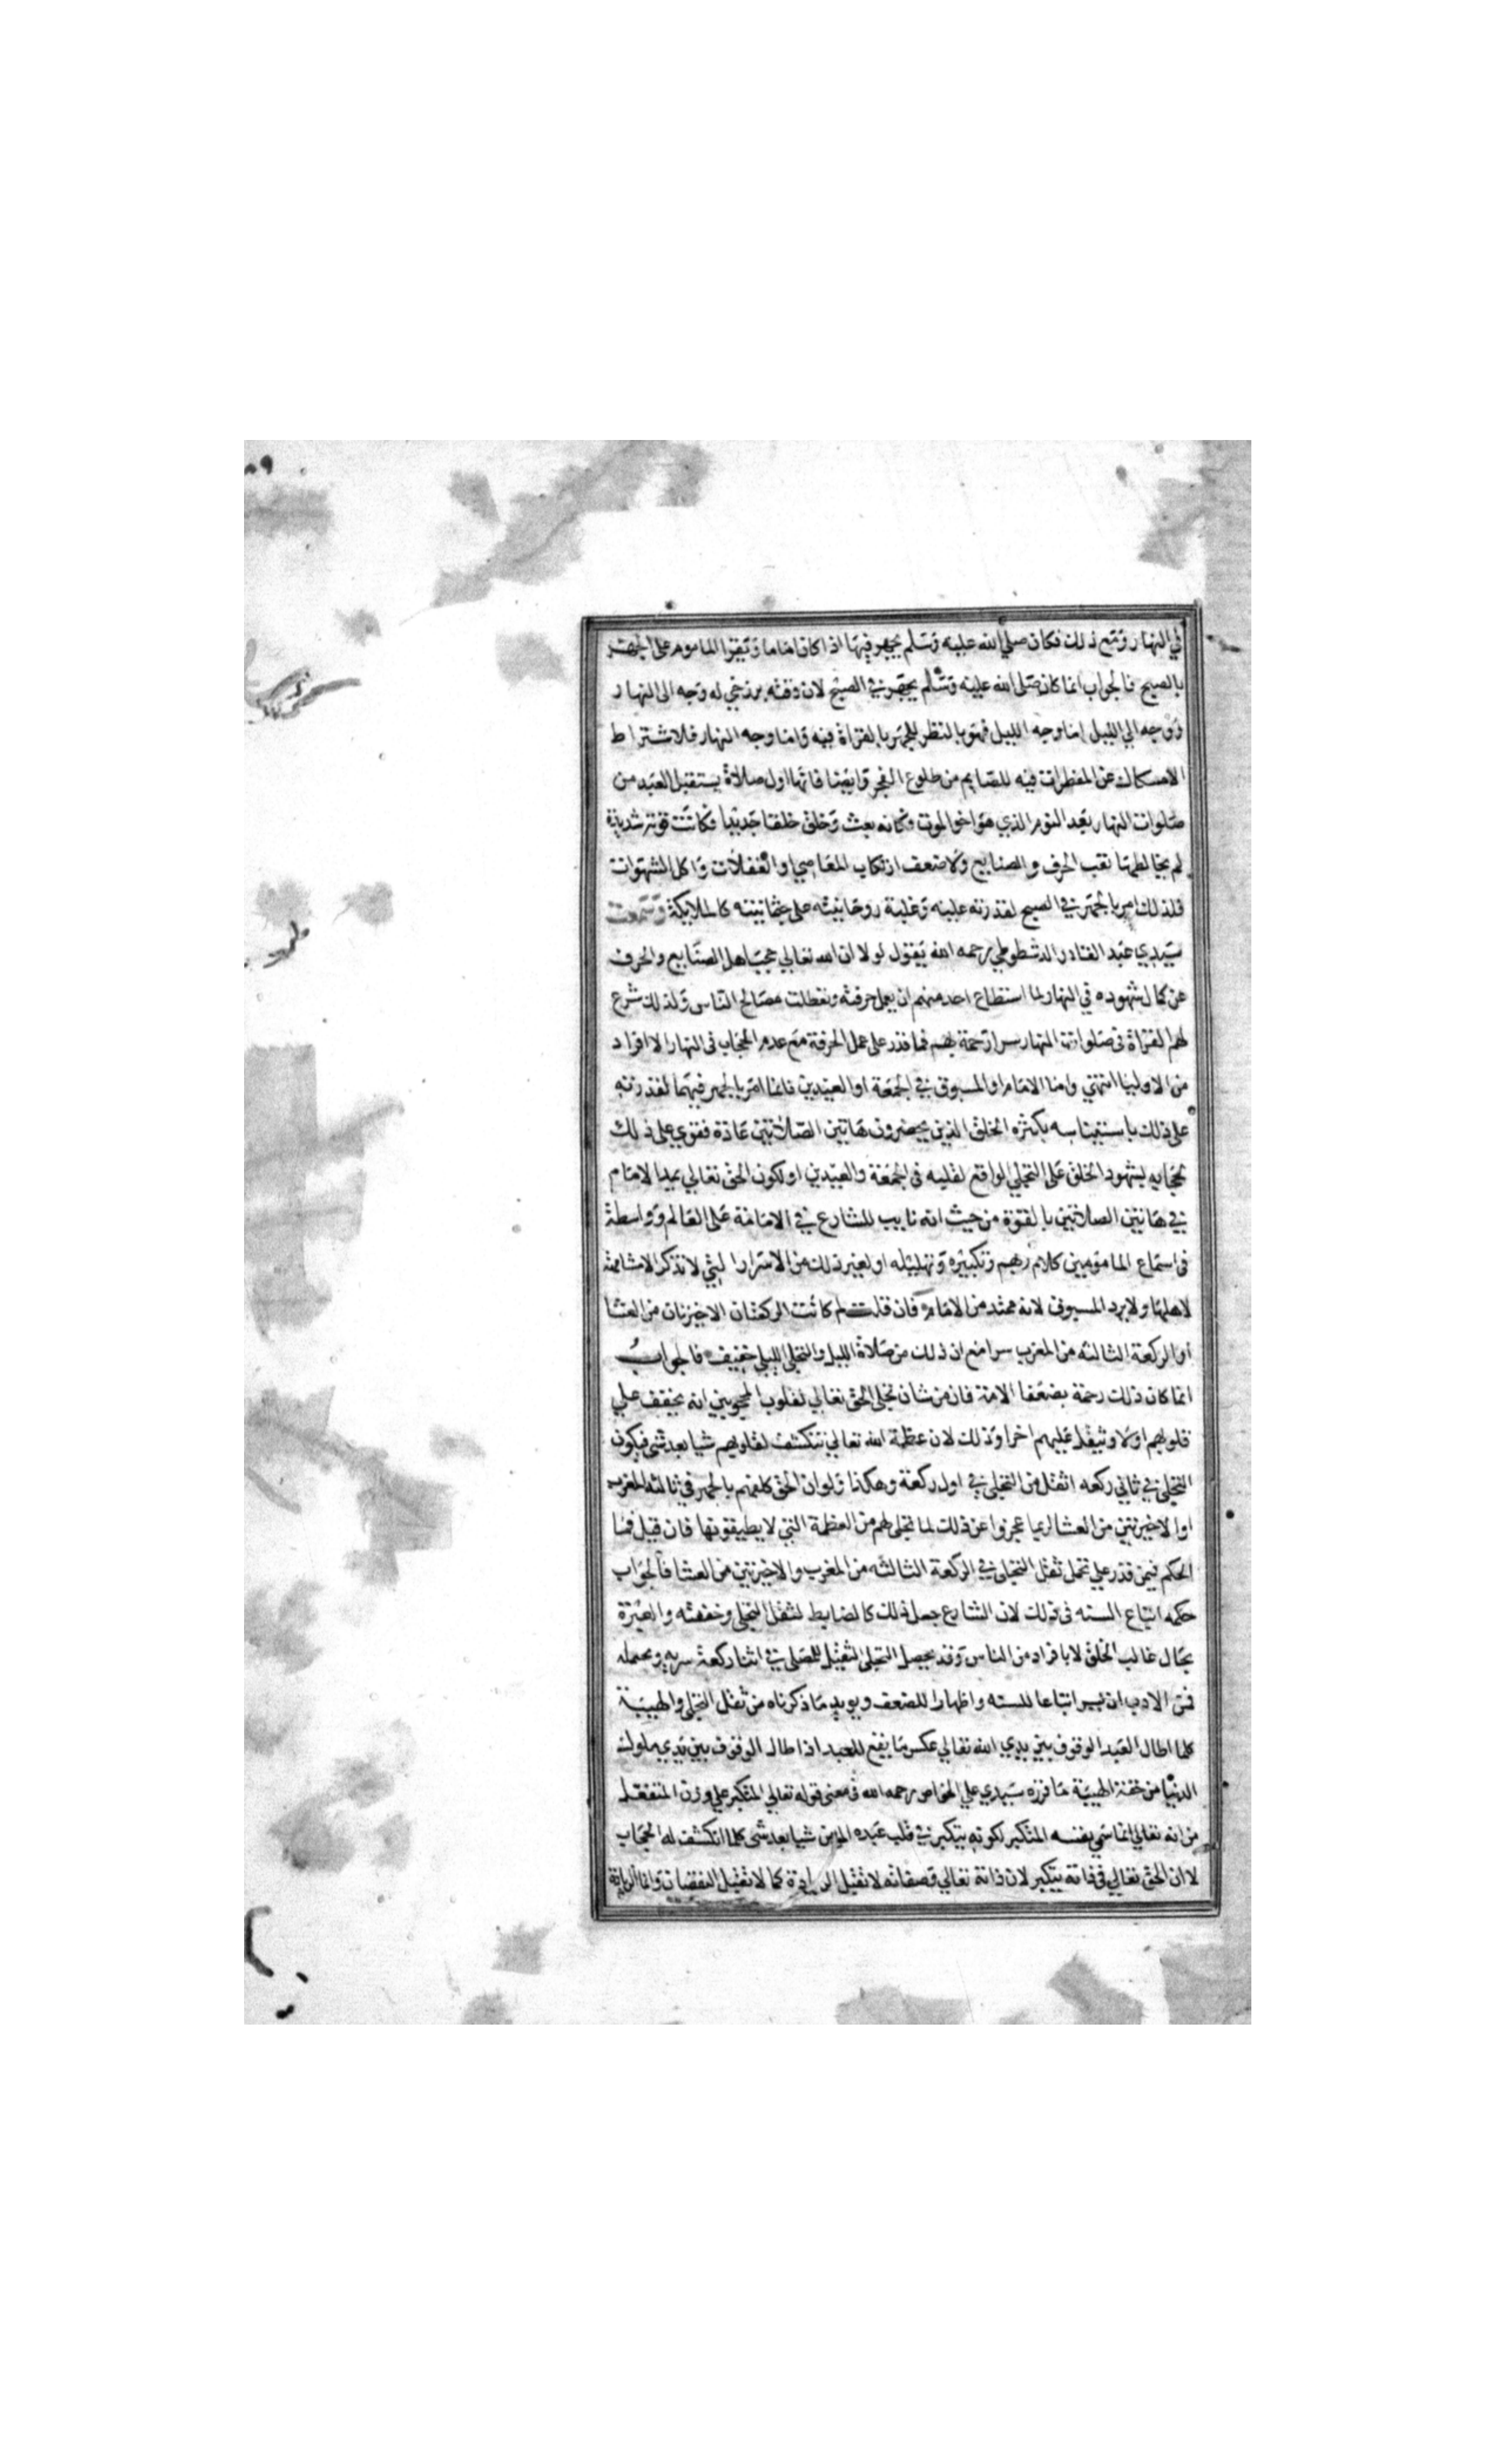 في النهار ومع ذلك فكان صلي الله عليه وسلم يجهر فيها اذا كان اماما ويقرا الماموم على الجهر
بالصبح فالجواب انما كان صلى الله عليه وسلم يجهر في الصبح لان وقته برزخي له وجه الى النهار
ووجه الي الليل اما وجه الليل فهو بالنظر للجهر بالقراة فيه واما وجه النهار فلاشتراط
الامساك عن المفطرات فيه للصايم من طلوع الفجر وايضا فانها اول صلاة يستقبل العبد من
صلوات النهار بعد النوم الذي هو اخو الموت وكانه بعث وخلق خلقا جديدا فكانت قوته شديدة
لم يخالطها تعب الحرف والصنايع ولا ضعف ارتكاب المعاصي والغفلات واكل الشهوات
فلذلك امر بالجهر في الصبح لقدرته عليه وغلبة روحانيته على جثمانيته كالملايكة وسمعت
سيدي عبد القادر الدشطوطي رحمه الله يقول لولا ان الله تعالي حجب اهل الصنايع والحرف
عن كمال شهوده في النهار لما استطاع احد منهم ان يعمل حرفته وتعطلت مصالح الناس ولذلك شرع
لهم القراة في صلوات النهار سرا رحمة بهم فما قدر على عمل الحرفة مع عدم الحجاب في النهار الا افراد
من الاوليا انتهي واما الامام او المسبوق في الجمعة او العيدين فانما امر بالجهر فيهما لقدرته
على ذلك باستيناسه بكثرة الخلق الذين يحضرون هاتين الصلاتين عادة فقوي على ذلك
بحجابه بشهود الخلق على التجلي الواقع لقلبه في الجمعة والعيدين او لكون الحق تعالي يمد الامام
في هاتين الصلاتين بالقوة من حيث انه نايب للشارع في الامامة على العالم وواسطة
في استماع المامومين كلام ربهم وتكبيره وتهليله او لغير ذلك من الاسرار التي لا تذكر الا مشافهة
لاهلها ولا يرد المسبوق لانه ممتد من الامام فان قلت لم كانت الركعتان الاخيرتان من العشا
او الركعة الثالثه من المغرب سرا مع ان ذلك من صلاة الليل والتجلي الليلي خفيف فالجواب
انما كان ذلك رحمة بضعفا الامة فان من شان تجلي الحق تعالي لقلوب المحجوبين انه يخفف علي
قلوبهم اولا ويثقل عليهم اخرا وذلك لان عظمة الله تعالي تنكشف لقلوبهم شيا بعد شى فيكون
التجلي في ثاني ركعه اثقل من التجلى في اول ركعة وهكذا ولو ان الحق كلفهم بالجهر في ثالثة المغرب
او الاخيرتين من العشا لربما عجزوا عن ذلك لما تجلى لهم من العظمة التي لا يطيقونها فان قيل فما
الحكم فيمن قدر علي تحمل ثقل التجلى في الركعة الثالثه من المغرب والاخيرتين من العشا فالجواب
حكمه اتباع السنه في ذلك لان الشارع جعل ذلك كالضابط لثقل التجلى وخفته والعبرة
بحال غالب الخلق لا بافراد من الناس وقد يحصل التجلى الثقيل للمصلى في اثنا ركعة سريه ويحمله
فمن الادب ان يسر اتباعا للسنه واظهارا للضعف ويويد ما ذكرناه من ثقل التجلي والهيبة
كلما اطال العبد الوقوف بين يدي الله تعالي عكس ما يقع للعبد اذا طال الوقوف بين يدي ملوك
الدنيا من خفة الهيبة ما قرره سيدي علي الخواص رحمه الله في معنى قوله تعالي المتكبر علي وزن المتفعل
من انه تعالي انما سمي نفسه المتكبر لكونه يتكبر في قلب عبده المومن شيا بعد شى كلما انكشف له الحجاب
لا ان الحق تعالي في ذاته يتكبر لان ذاته تعالي وصفاته لا تقبل الزيادة كما لا تقبل النقصان وانما الزيادة